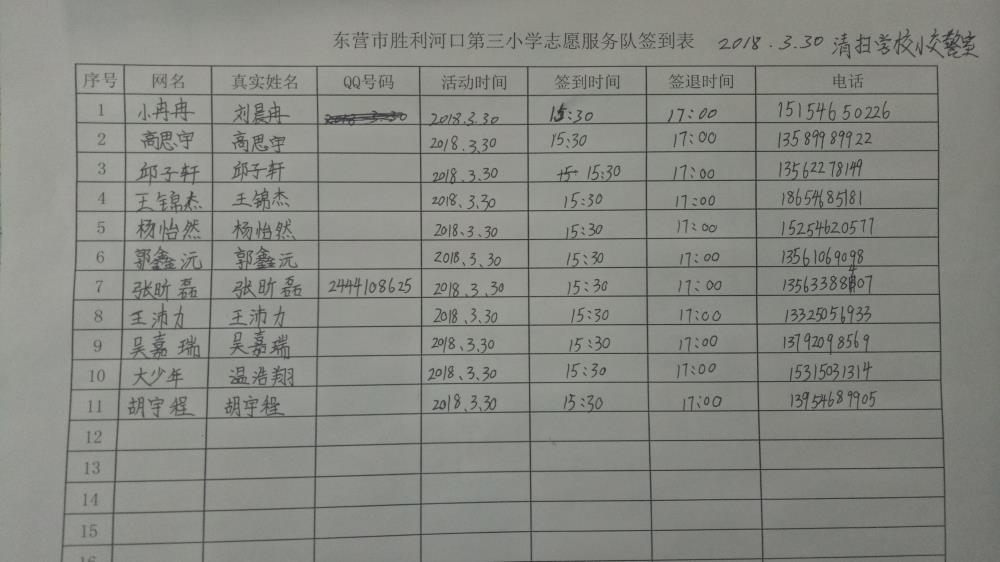 东营市胜利河口第三小学志愿服务队签到表 2018.3.30 清扫学校小交警室
序号 网名 真实姓名 QQ号码 活动时间 签到时间 签退时间 电话
1 小冉冉 刘晨冉 2018.3.30 2018.3.30 15:30 17:00 15154650226
2 高思宇 高思宇 2018.3.30 15:30 17:00 13589989922
3 邱子轩 邱子轩 2018.3.30 15 15:30 17:00 13562278149
4 王锦杰 王锦杰 2018.3.30 15:30 17:00 18654685181
5 杨怡然 杨怡然 2018.3.30 15:30 17:00 15254620577
6 郭鑫沅 郭鑫沅 2018.3.30 15:30 17:00 13561069098
7 张昕磊 张昕磊 2444108625 2018.3.30 15:30 17:00
8 王沛力 王沛力 2018.3.30 15:30 17:00 13325056933
9 吴嘉瑞 吴嘉瑞 2018.3.30 15:30 17:00 13792098569
10 大少年 温浩翔 2018.3.30 15:30 17:00 15315031314
11 胡宇程 胡宇程 2018.3.30 15:30 17:00 13954689905
12
13
14
15
16